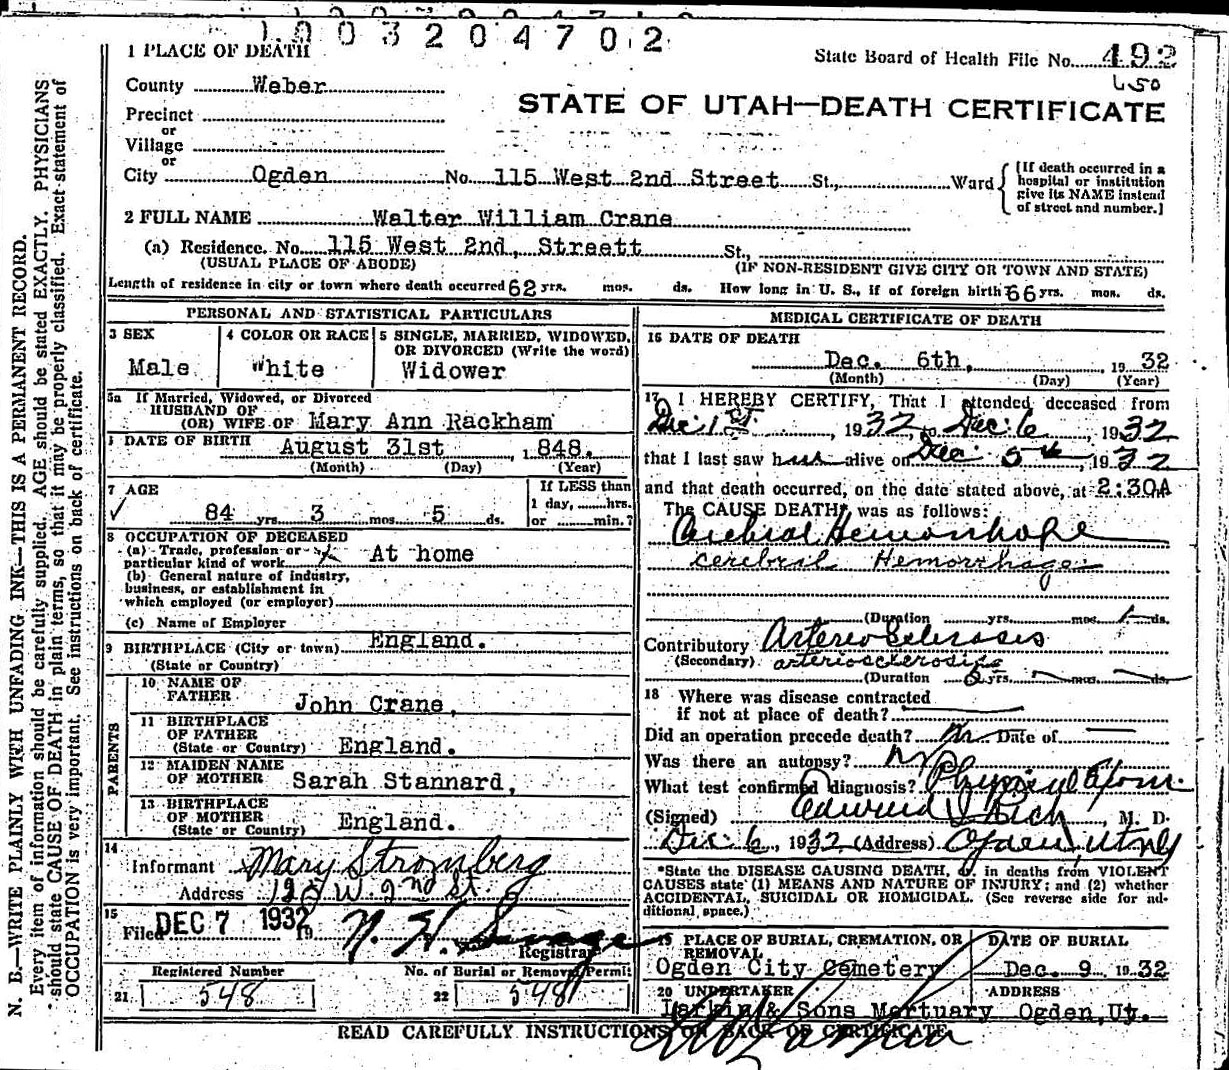 1003204702
1 PLACE OF DEATH
State Board of Health File No. 492
650
County Weber
STATE OF UTAH—DEATH CERTIFICATE
Precinct
or
Village
or
City Ogden No. 115 West 2nd Street St., Ward
[If death occurred in a
hospital or institution
give its NAME instead
of street and number.]
2 FULL NAME Walter William Crane
(a) Residence. No. 115 West 2nd, Streett St.,
(USUAL PLACE OF ABODE) (IF NON-RESIDENT GIVE CITY OR TOWN AND STATE)
Length of residence in city or town where death occurred 62 yrs. mos. ds. How long in U. S., if of foreign birth 66 yrs. mos. ds.
PERSONAL AND STATISTICAL PARTICULARS
3 SEX
Male
4 COLOR OR RACE
White
5 SINGLE, MARRIED, WIDOWED,
OR DIVORCED (Write the word)
Widower
5a If Married, Widowed, or Divorced
HUSBAND OF
(OR) WIFE OF Mary Ann Rackham
DATE OF BIRTH August 31st 1848.
(Month) (Day) (Year)
7 AGE
84 yrs. 3 mos. 5 ds.
If LESS than
1 day, hrs.
or min.?
8 OCCUPATION OF DECEASED
(a) Trade, profession or
particular kind of work At home
(b) General nature of industry,
business, or establishment in
which employed (or employer)
(c) Name of Employer
9 BIRTHPLACE (City or town) England.
(State or Country)
PARENTS
10 NAME OF
FATHER John Crane,
11 BIRTHPLACE
OF FATHER
(State or Country) England.
12 MAIDEN NAME
OF MOTHER Sarah Stannard,
13 BIRTHPLACE
OF MOTHER
(State or Country) England.
14
Informant Mary Stromberg
Address 125 W. 2nd St.
15
Filed DEC 7 1932 19
N. H. Savage
Registrar
Registered Number No. of Burial or Removal Permit
21 548 22 548
MEDICAL CERTIFICATE OF DEATH
16 DATE OF DEATH
Dec. 6th, 1932
(Month) (Day) (Year)
17 I HEREBY CERTIFY, That I attended deceased from
Dec 1st, 1932, to Dec. 6, 1932
that I last saw h alive on Dec 5th, 1932
and that death occurred, on the date stated above, at 2:30A m
The CAUSE DEATH was as follows:
Cerebral Hemorrhage
cerebril Hemorrhage
(Duration yrs. mos. ds.
Contributory Arterio Sclerosis
(Secondary) arteriosclerosis
(Duration yrs. mos. ds.
18 Where was disease contracted
if not at place of death?
Did an operation precede death? no Date of
Was there an autopsy? no
What test confirmed diagnosis? Physical Exam.
(Signed) Edward I Rich, M. D.
Dec 6, 1932 (Address) Ogden, Utah
*State the DISEASE CAUSING DEATH, or, in deaths from VIOLENT
CAUSES state (1) MEANS AND NATURE OF INJURY; and (2) whether
ACCIDENTAL, SUICIDAL OR HOMICIDAL. (See reverse side for ad-
ditional space.)
19 PLACE OF BURIAL, CREMATION, OR
REMOVAL
Ogden City Cemetery
DATE OF BURIAL
Dec. 9 1932
20 UNDERTAKER ADDRESS
Larkin & Sons Mortuary Ogden, Ut.
READ CAREFULLY INSTRUCTIONS ON BACK OF CERTIFICATE
N. B.—WRITE PLAINLY WITH UNFADING INK—THIS IS A PERMANENT RECORD.
Every item of information should be carefully supplied. AGE should be stated EXACTLY. PHYSICIANS
should state CAUSE OF DEATH in plain terms, so that it may be properly classified. Exact statement of
OCCUPATION is very important. See instructions on back of certificate.